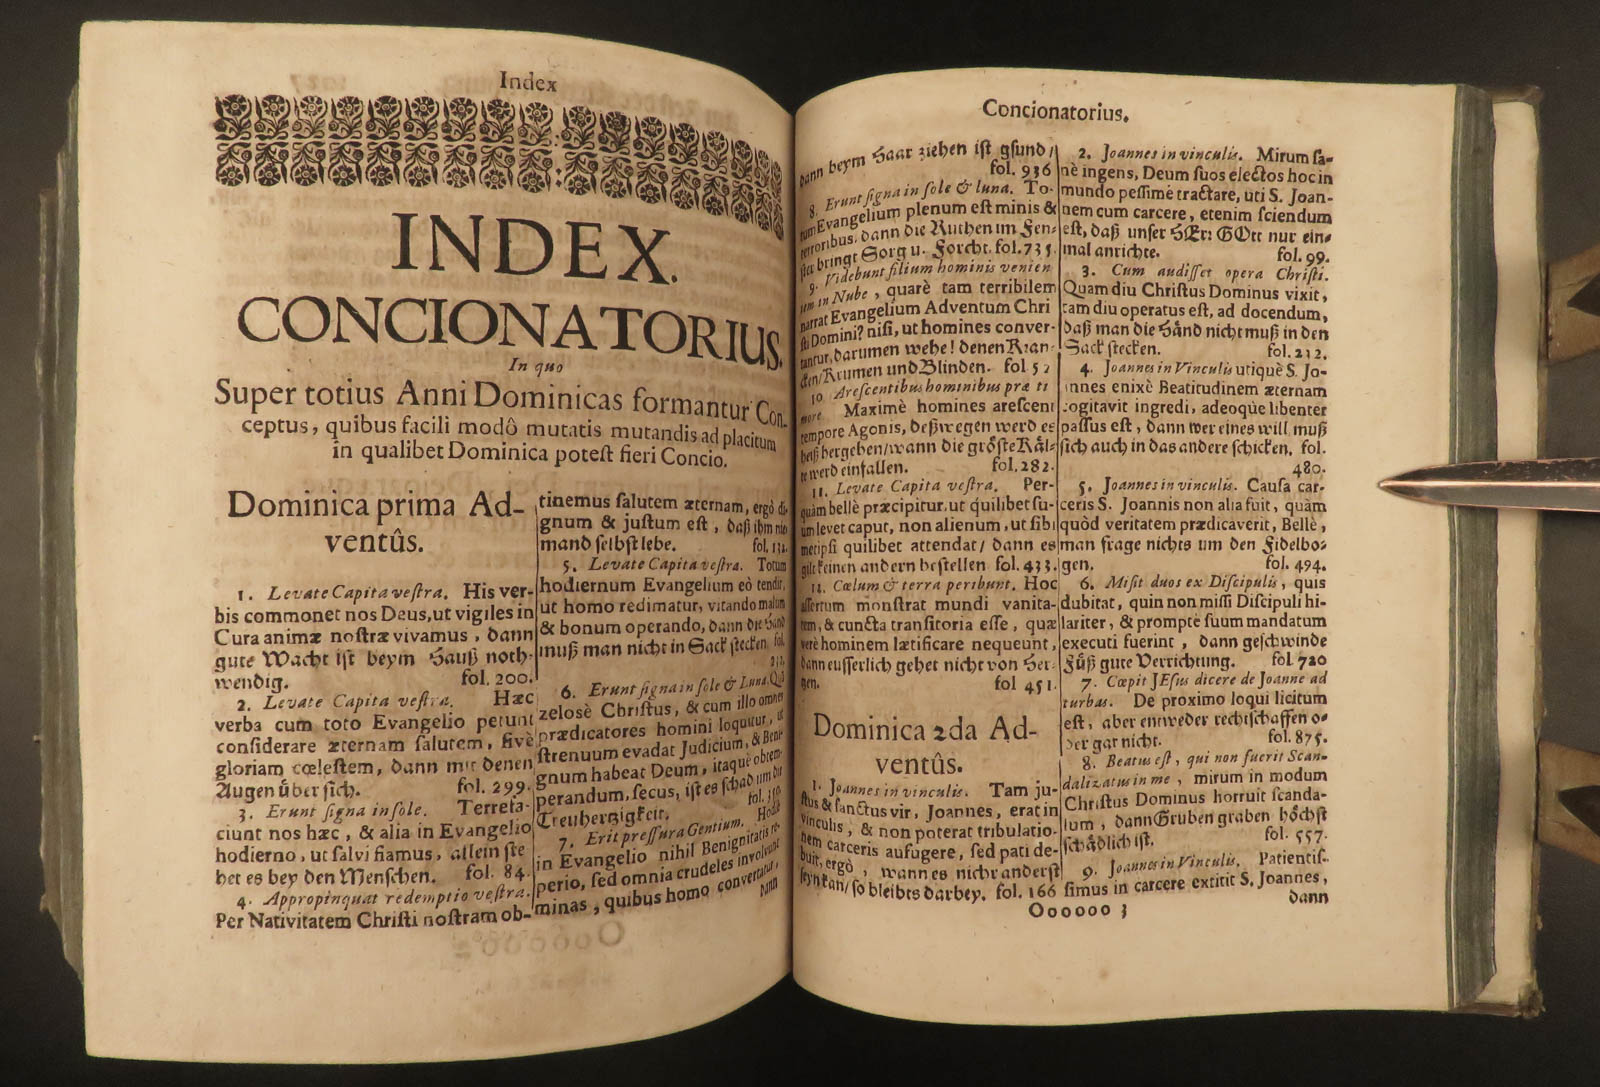 Index
INDEX.
CONCIONATORIUS.
In quo
Super totius Anni Dominicas formantur Con-
ceptus, quibus facili modô mutatis mutandis ad placitum
in qualibet Dominica potest fieri Concio.
Dominica prima Ad-
ventûs.
1. Levate Capita vestra. His ver-
bis commonet nos Deus, ut vigiles in
Cura animæ nostræ vivamus, dann
gute Wacht ist beym Hauß noth-
wendig. fol. 200.
2. Levate Capita vestra. Hæc
verba cum toto Evangelio petunt
considerare æternam salutem, sivè
gloriam cœlestem, dann mit denen
Augen über sich. fol. 299.
3. Erunt signa in sole. Terreta-
ciunt nos hæc, & alia in Evangelio
hodierno, ut salvi fiamus, allein ste
het es bey den Menschen. fol. 84.
4. Appropinquat redemptio vestra.
Per Nativitatem Christi nostram ob-
tinemus salutem æternam, ergò di-
gnum & justum est, daß ihm nie
mand selbst lebe. fol. 132.
5. Levate Capita vestra. Totum
hodiernum Evangelium eò tendit,
ut homo redimatur, vitando malum
& bonum operando, dann die Hand
muß man nicht in Sack stecken. fol.
212.
6. Erunt signa in sole & Luna. Quà
zelosè Christus, & cum illo omnes
prædicatores homini loquitur, ut
strenuum evadat Judicium, & Beni-
gnum habeat Deum, itaque obtem-
perandum, secus, ist es schad um die
Treuhertzigkeit. fol. 350
7. Erit pressura Gentium. Hodie
in Evangelio nihil Benignitatis re-
perio, sed omnia crudeles involvunt
minas, quibus homo convertatur,
dann
Concionatorius.
dann beym Haar ziehen ist gsund /
fol. 936
8. Erunt signa in sole & luna. To-
tum Evangelium plenum est minis &
terroribus, dann die Ruthen im Fen-
ster bringt Sorg u. Forcht. fol. 735.
9. Videbunt filium hominis venien
tem in Nube, quarè tam terribilem
narrat Evangelium Adventum Chri
sti Domini? nisi, ut homines conver-
tantur, darumen wehe! denen Kran-
cken / Krumen und Blinden. fol 52
10 Arescentibus hominibus præ ti
more Maximè homines arescent
tempore Agonis, deßwegen werd es
heiß hergehen / wann die gröste Käl-
te werd einfallen. fol. 282.
11. Levate Capita vestra. Per-
quàm bellè præcipitur, ut quilibet su-
um levet caput, non alienum, ut sibi
metipsi quilibet attendat / dann es
gilt keinen andern bestellen fol. 433.
12. Cœlum & terra peribunt. Hoc
assertum monstrat mundi vanita-
tem, & cuncta transitoria esse, quæ
verè hominem lætificare nequeunt,
dann eusserlich gehet nicht von Her-
tzen. fol 451.
Dominica 2da Ad-
ventûs.
1. Joannes in vinculis. Tam ju-
stus & sanctus vir, Joannes, erat in
vinculis, & non poterat tribulatio-
nem carceris aufugere, sed pati de-
buit, ergò, wann es nicht anderst
seyn kan / so bleibts darbey. fol. 166
2. Joannes in vinculis. Mirum sa-
nè ingens, Deum suos electos hoc in
mundo pessimè tractare, uti S. Joan-
nem cum carcere, etenim sciendum
est, daß unser HErr GOtt nur ein-
mal anrichte. fol. 99.
3. Cum audisset opera Christi.
Quam diu Christus Dominus vixit,
tam diu operatus est, ad docendum,
daß man die Händ nicht muß in den
Sack stecken. fol. 212.
4. Joannes in Vinculis utiquè S. Jo-
annes enixè Beatitudinem æternam
cogitavit ingredi, adeoque libenter
passus est, dann wer eines will, muß
sich auch in das andere schicken, fol.
480.
5. Joannes in vinculis. Causa car-
ceris S. Joannis non alia fuit, quàm
quòd veritatem prædicaverit, Bellè,
man frage nichts um den Fidelbo-
gen. fol. 494.
6. Misit duos ex Discipulis, quis
dubitat, quin non missi Discipuli hi-
lariter, & promptè suum mandatum
executi fuerint, dann geschwinde
Füß gute Verrichtung. fol 720
7. Cœpit JEsus dicere de Joanne ad
turbas. De proximo loqui licitum
est, aber entweder rechtschaffen o-
der gar nicht. fol. 875.
8. Beatus est, qui non fuerit Scan-
dalizatus in me, mirum in modum
Christus Dominus horruit scanda-
lum, dann Gruben graben höchst
schädlich ist. fol. 557.
9. Joannes in Vinculis. Patientis-
simus in carcere extitit S. Joannes,
Oooooo 3 dann